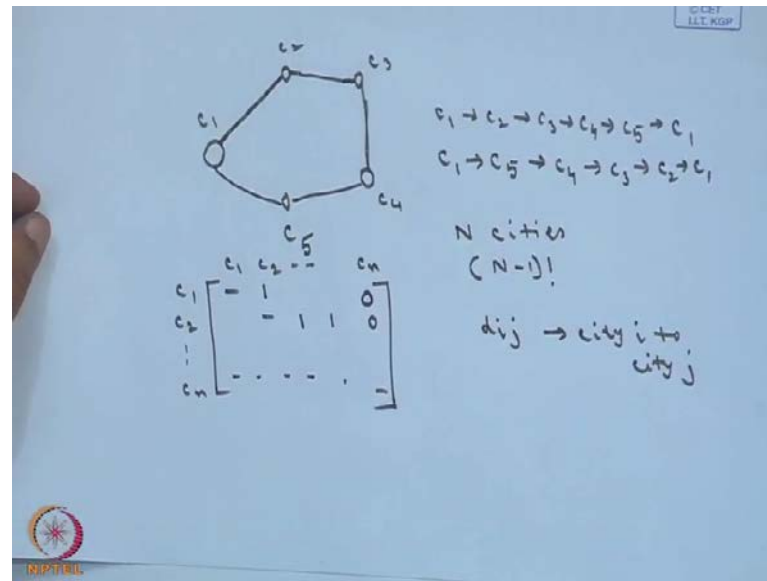 C CET
I.I.T. KGP
c2
c3
c1
c4
c5
c1 → c2 → c3 → c4 → c5 → c1
c1 → c5 → c4 → c3 → c2 → c1
N cities
(N-1)!
dij → city i to
city j
c1 c2 -- cn
c1 - 1 0
c2 - 1 1 0
⋮
cn - - - - . -
NPTEL